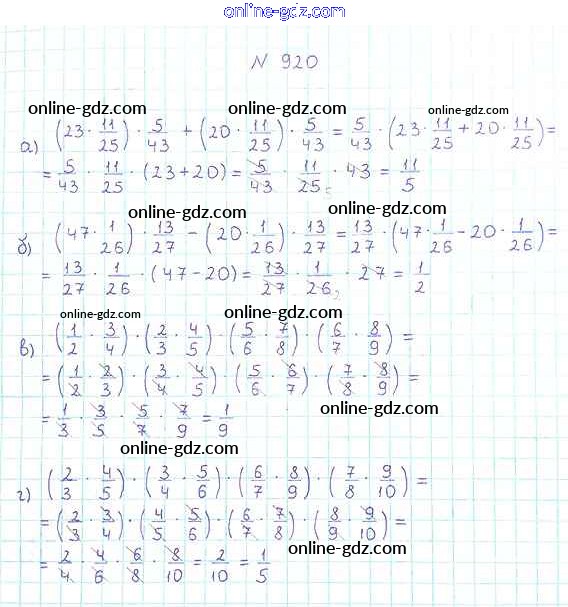 online-gdz.com
N 920
online-gdz.com online-gdz.com online-gdz.com
а) (23 · 11/25) · 5/43 + (20 · 11/25) · 5/43 = 5/43 · (23 · 11/25 + 20 · 11/25) =
= 5/43 · 11/25 · (23 + 20) = 5/43 · 11/25 5 · 43 = 11/5
online-gdz.com online-gdz.com
б) (47 · 1/26) · 13/27 - (20 · 1/26) · 13/27 = 13/27 · (47 · 1/26 - 20 · 1/26) =
= 13/27 · 1/26 · (47 - 20) = 13/27 · 1/26 2 · 27 = 1/2
online-gdz.com online-gdz.com
в) (1/2 · 3/4) · (2/3 · 4/5) · (5/6 · 7/8) · (6/7 · 8/9) =
= (1/2 · 2/3) · (3/4 · 4/5) · (5/6 · 6/7) · (7/8 · 8/9) =
online-gdz.com
= 1/3 · 3/5 · 5/7 · 7/9 = 1/9
online-gdz.com
г) (2/3 · 4/5) · (3/4 · 5/6) · (6/7 · 8/9) · (7/8 · 9/10) =
= (2/3 · 3/4) · (4/5 · 5/6) · (6/7 · 7/8) · (8/9 · 9/10) =
online-gdz.com
= 2/4 · 4/6 · 6/8 · 8/10 = 2/10 = 1/5